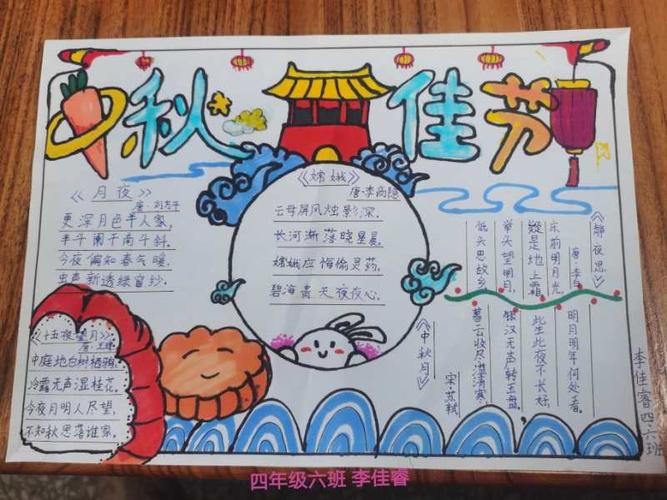 中秋佳节
《月夜》
唐·刘方平
更深月色半人家,
北斗阑干南斗斜.
今夜偏知春气暖,
虫声新透绿窗纱.
《嫦娥》
唐·李商隐
云母屏风烛影深,
长河渐落晓星晨.
嫦娥应悔偷灵药,
碧海青天夜夜心.
《静夜思》
唐·李白
床前明月光,
疑是地上霜.
举头望明月,
低头思故乡.
《十五夜望月》
唐·王建
中庭地白树栖鸦,
冷露无声湿桂花.
今夜月明人尽望,
不知秋思落谁家.
《中秋月》
宋·苏轼
暮云收尽溢清寒,
银汉无声转玉盘,
此生此夜不长好,
明月明年何处看.
李佳睿四.六班
四年级六班 李佳睿